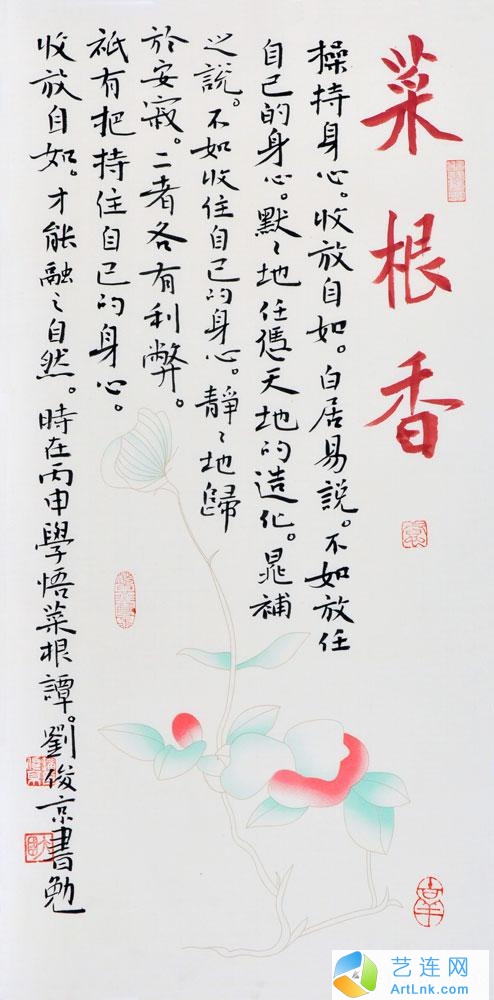 菜根香
操持身心。收放自如。白居易説。不如放任
自己的身心。默々地任憑天地的造化。晁補
之説。不如收住自己的身心。靜々地歸
於安寂。二者各有利弊。
祇有把持住自己的身心。
收放自如。才能融之自然。時在丙申學悟菜根譚。劉俊京書勉
艺连网
ArtLnk.com